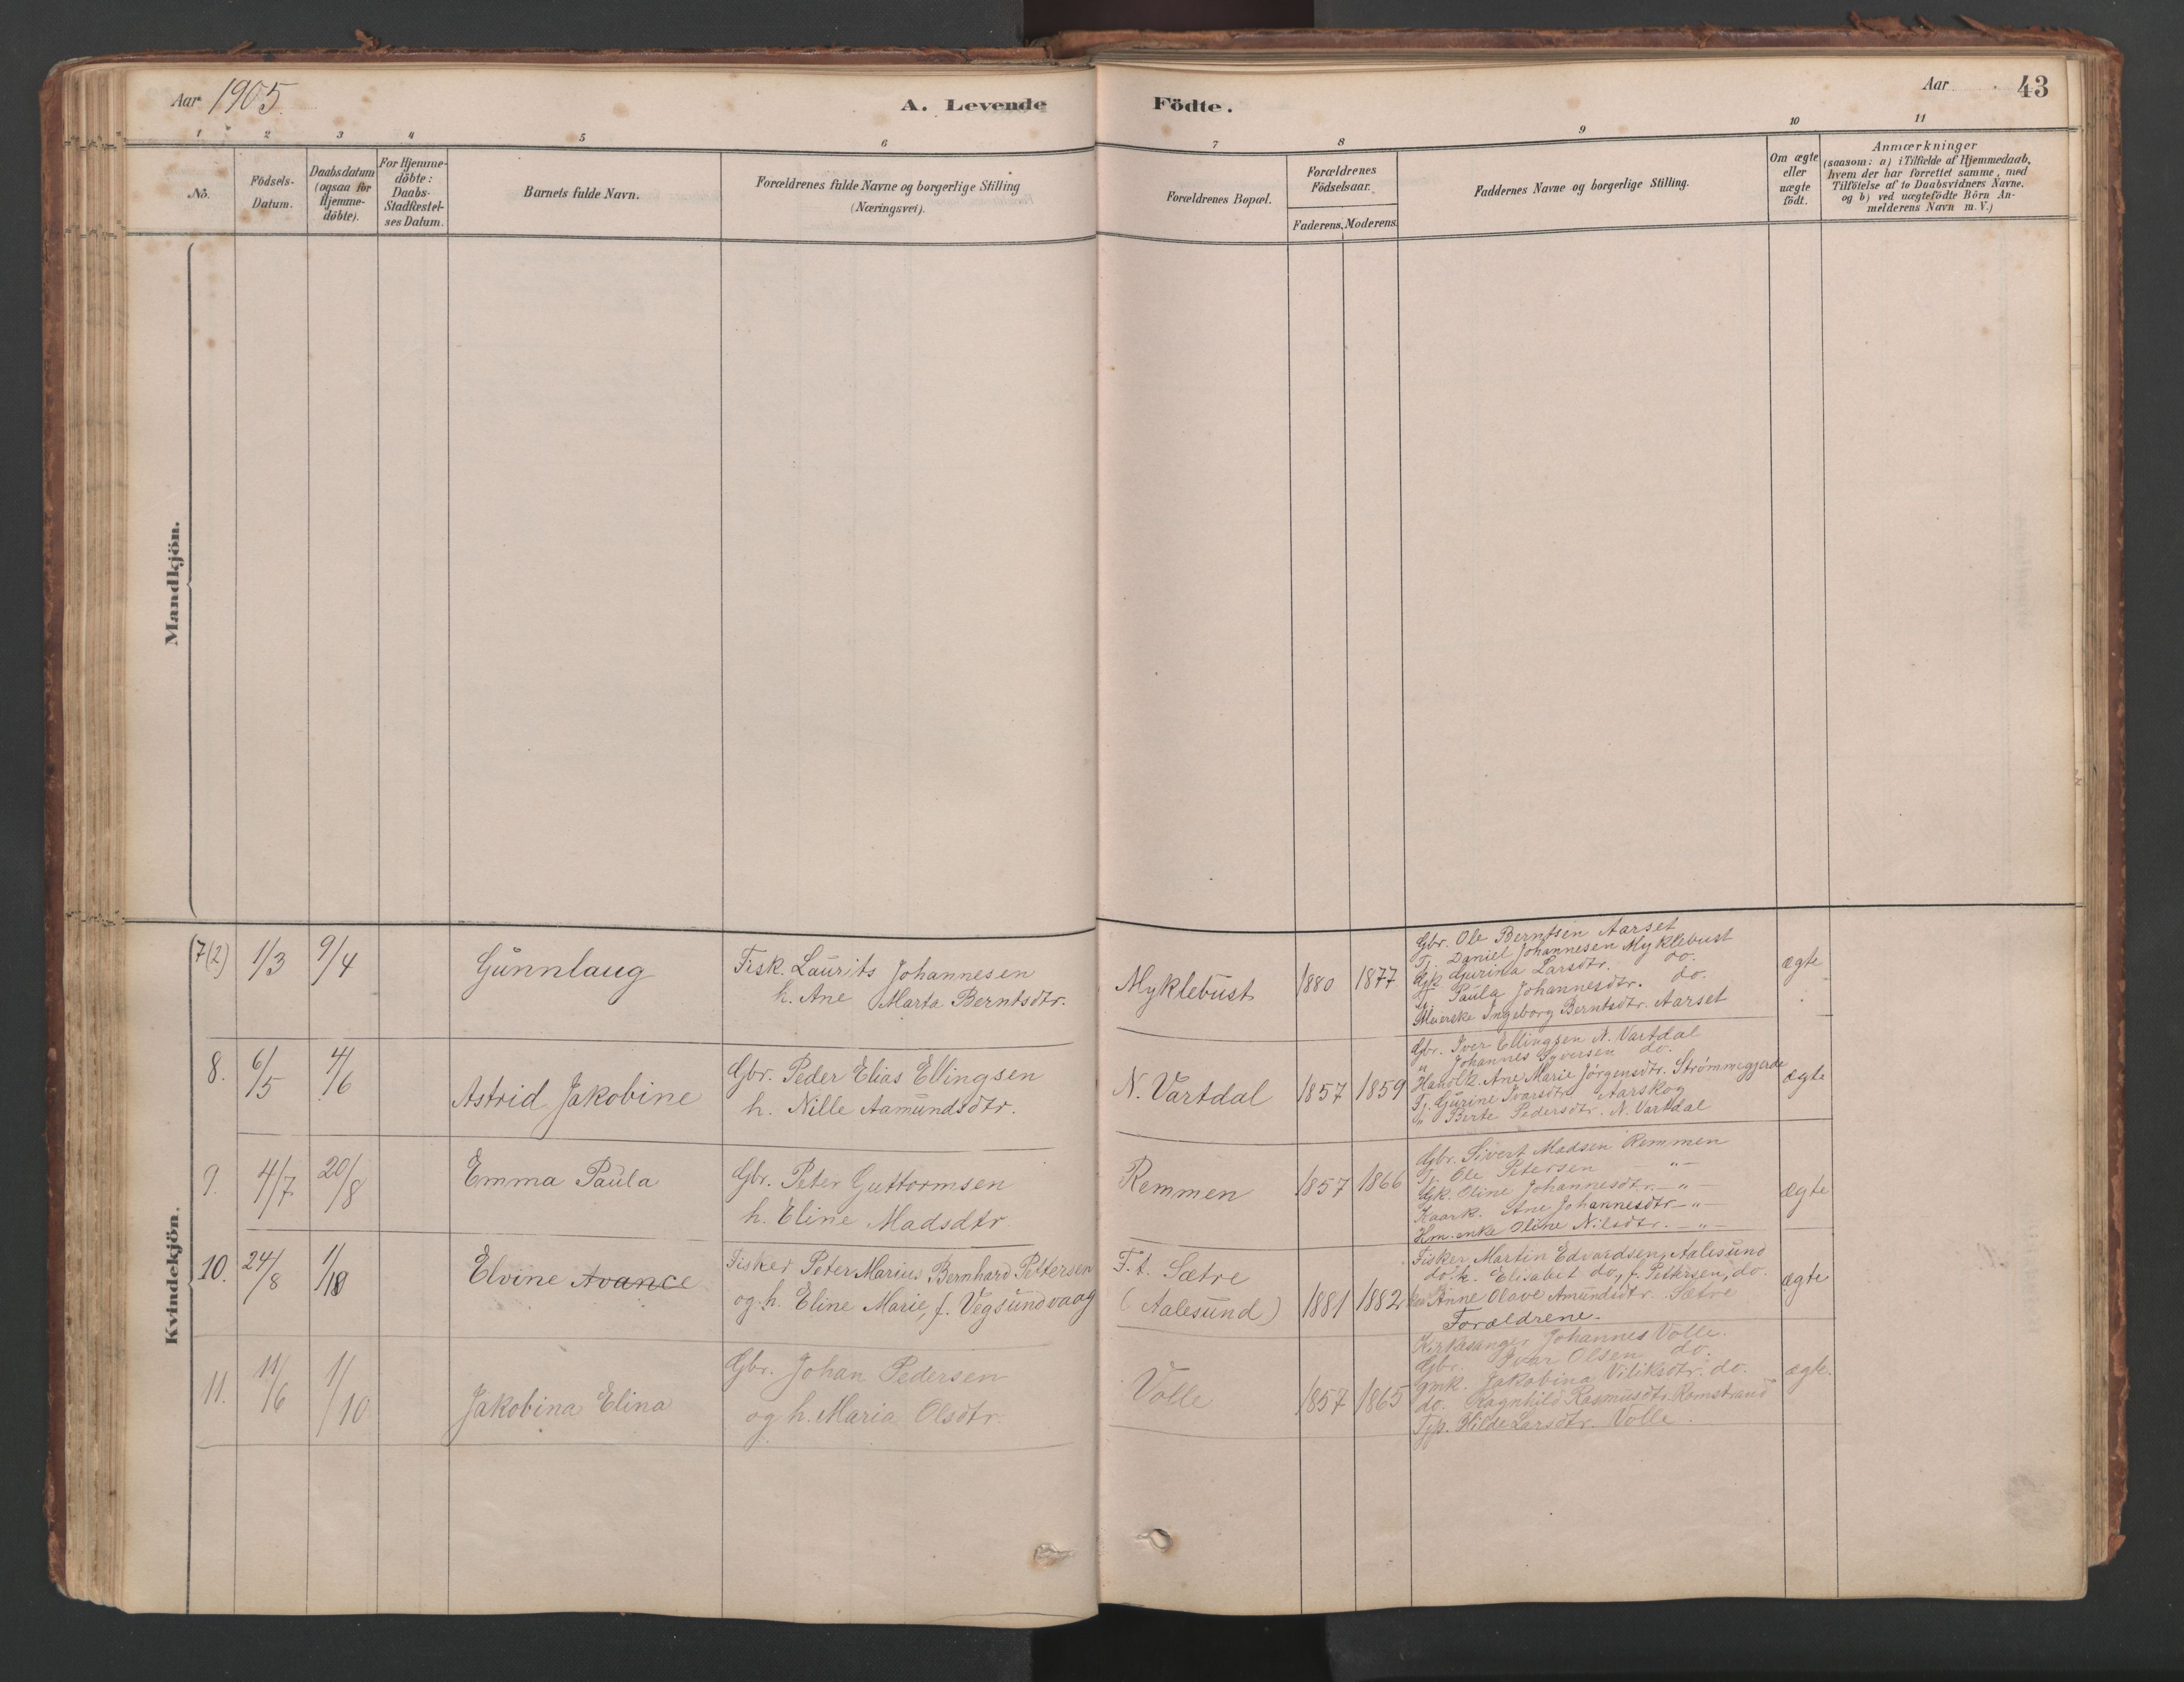 Aar 1905.
A. Levende Födte.
Aar 43
1 2 3 4 5 6 7 8 9 10 11
No.
Födsels-Datum.
Daabsdatum (ogsaa for Hjemme-döbte).
For Hjemme-döbte: Daabs-Stadfæstel-ses Datum.
Barnets fulde Navn.
Forældrenes fulde Navne og borgerlige Stilling
(Næringsvei).
Forældrenes Bopæl.
Forældrenes Födselsaar.
Faderens. Moderens.
Faddernes Navne og borgerlige Stilling.
Om ægte eller uægte födt.
Anmærkninger
(saasom: a) i Tilfælde af Hjemmedaab,
hvem der har forrettet samme, med
Tilföielse af to Daabsvidners Navne.
og b) ved uægtefödte Börn An-
melderens Navn m.V.)
Mandkjön.
Kvindekjön.
(7(2) 1/3 9/4 Gunnlaug
Fisk. Laurits Johannesen
h. Ane Marta Berntsdtr.
Myklebust 1880 1877
Gbr. Ole Berntsen Aarset
Tj. Daniel Johannesen Myklebust
Gk. Gurina Larsdtr. do.
Tj. Paula Johannesdtr. do.
Meierske Ingeborg Berntsdtr. Aarset
ægte
8. 6/5 4/6 Astrid Jakobine
Gbr. Peder Elias Ellingsen
h. Nille Aamundsdtr.
N. Vartdal 1857 1859
Gbr. Iver Ellingsen N. Vartdal
" Johannes Syversen do.
Handlk. Ane Marie Jörgensdtr. Strømmegjerde
Tj. Gurine Ivarsdtr. Aarskog
" Berte Pedersdtr. N. Vartdal
ægte
9. 4/7 20/8 Emma Paula
Gbr. Peter Guttormsen
h. Eline Madsdtr.
Remmen 1857 1866
Gbr. Sivert Madsen Remmen
Tj. Ole Petersen -"-
Gk. Oline Johannesdtr. -"-
Kaark. Ane Johannesdtr. -"-
Hm. enke Oline Nilsdtr. -"-
ægte
10. 24/8 1/10 Elvine Avance
Fisker Peter Marius Bernhard Pettersen
og h. Eline Marie, f. Vegsundvaag
F.t. Sætre
(Aalesund) 1881 1882
Fisker Martin Edvardsen, Aalesund
do. k. Elisabet do, f. Pettersen, do.
Anne Olave Amundsdtr. Sætre
Forældrene.
ægte
11. 11/6 1/10 Jakobina Elina
Gbr. Johan Pedersen
og h. Maria Olsdtr.
Volle 1857 1865
Kirkesanger Johannes Volle.
Gbr. Ivar Olsen do.
gmk. Jakobina Viliksdtr. do.
do. Ragnhild Rasmusdtr. Romstrand
Tjp. Hilde Larsdtr. Volle.
ægte.